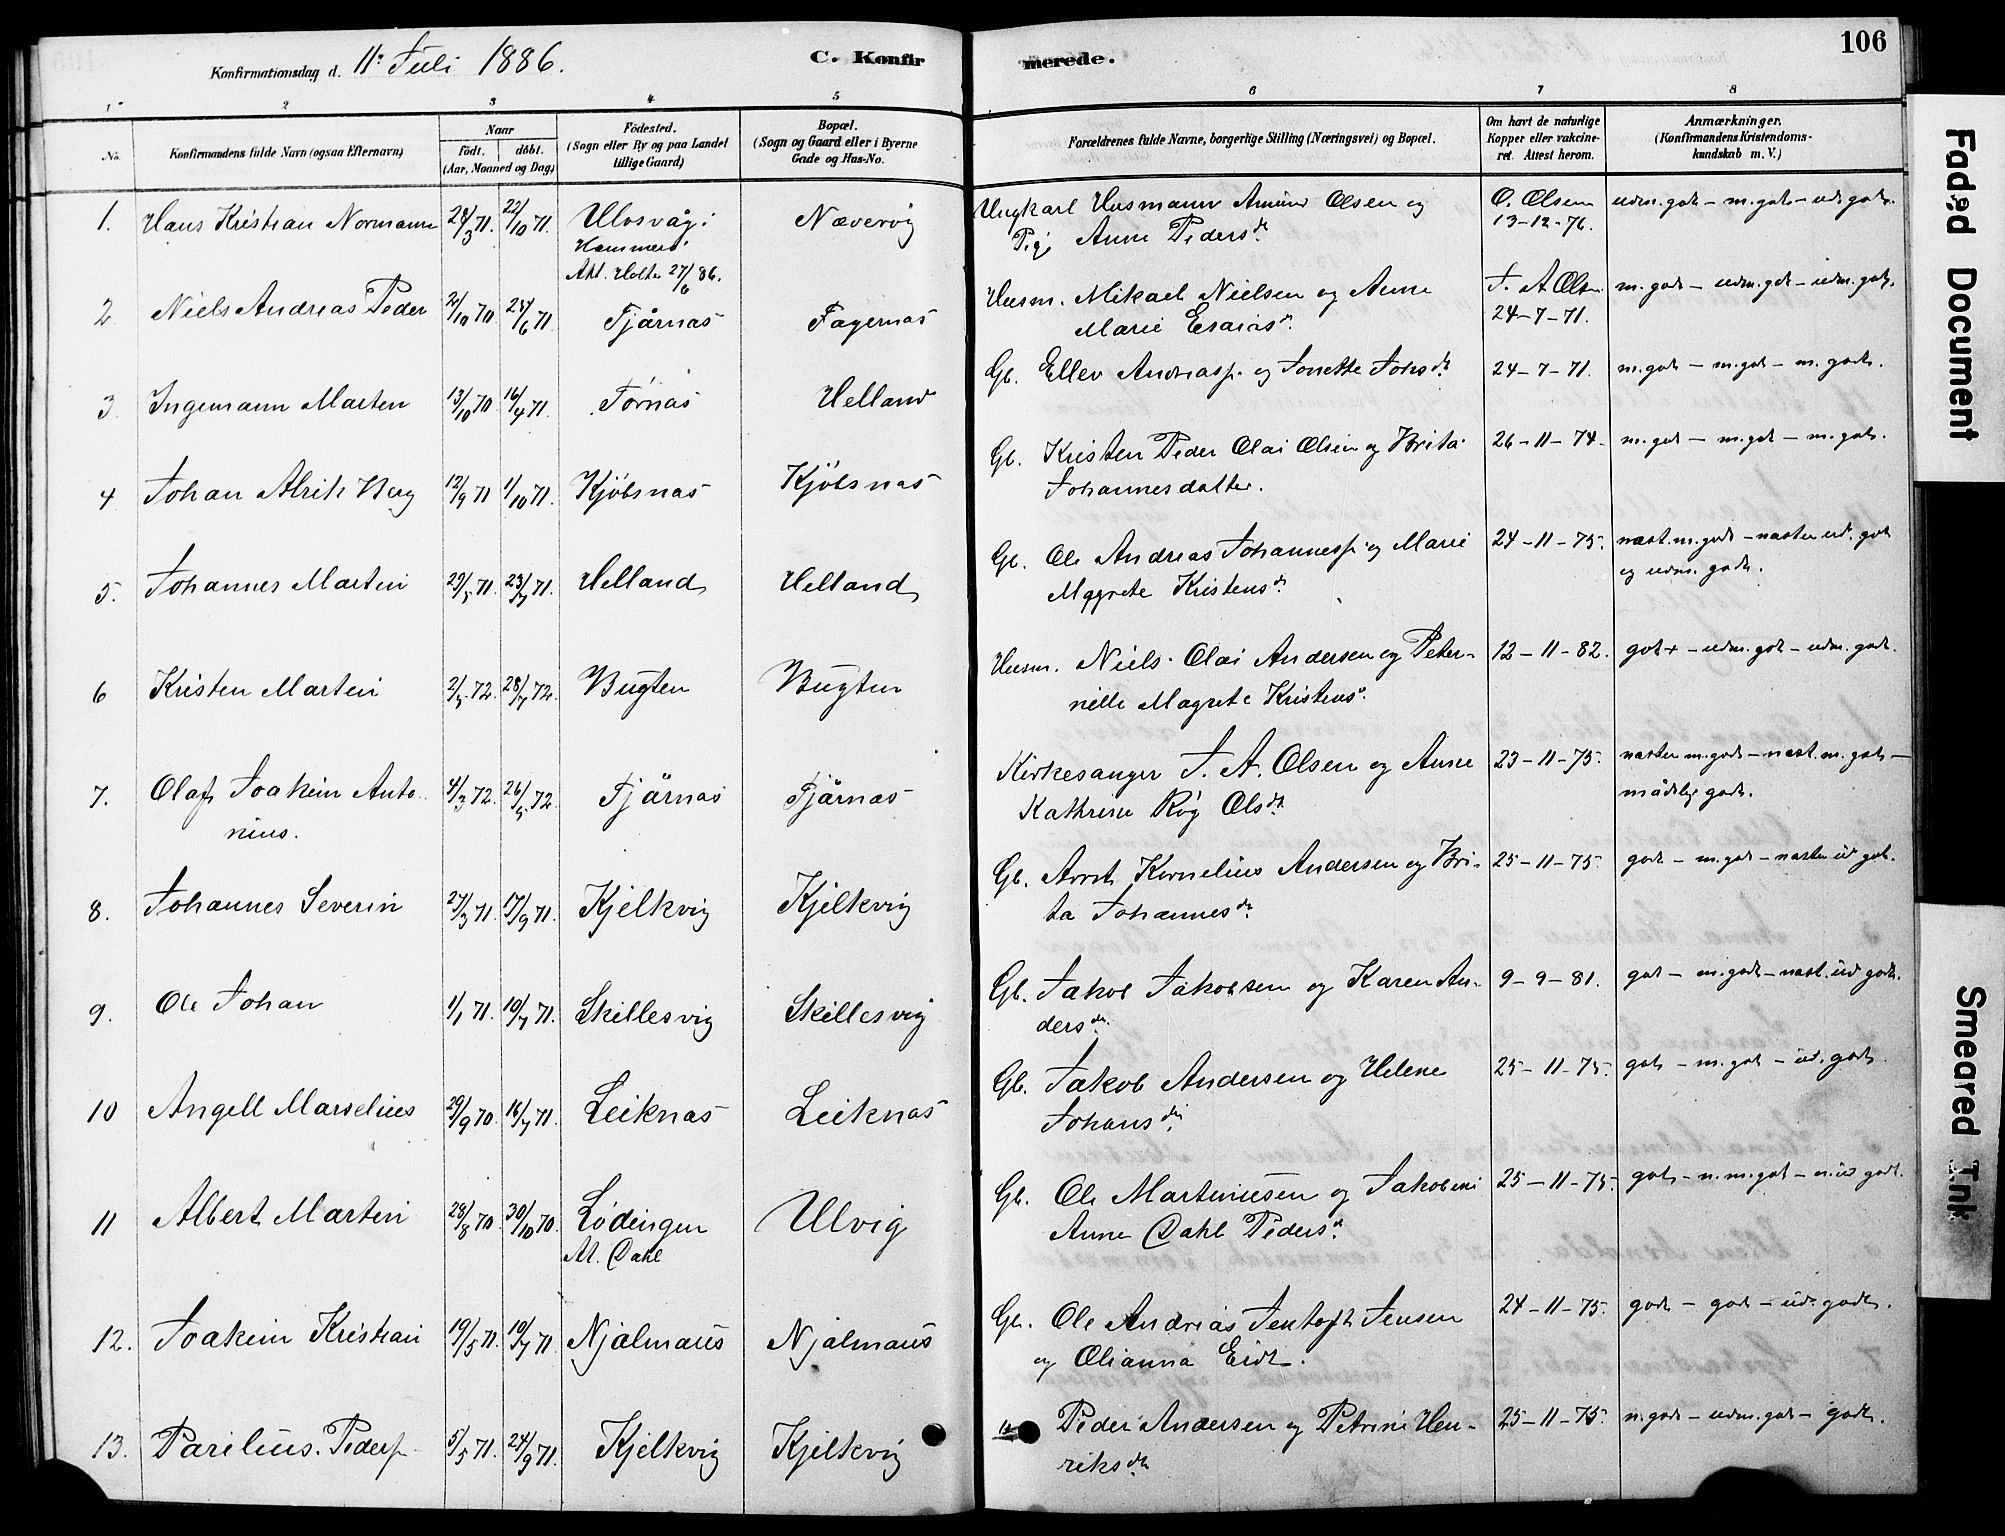 106
Konfirmationsdag d. 11: Juli 1886. C. Konfirmerede.
1 2 3 4 5 6 7 8
No. Konfirmandens fulde Navn (ogsaa Efternavn) Naar født. døbt. (Aar, Maaned og Dag) Fødested. (Sogn eller By og paa Landet tillige Gaard) Bopæl. (Sogn og Gaard eller i Byerne Gade og Hus-No. Forældrenes fulde Navne, borgerlige Stilling (Næringsvei) og Bopæl. Om havt de naturlige Kopper eller vakcineret. Attest herom. Anmærkninger. (Konfirmandens Kristendomskundskab m. V.)
1. Hans Kristian Normann 28/3 71. 22/10 71. Ulvsvåg i Hammerö. Att. Holte 27/6 86. Nævervig Ungkarl Husmann Amund Olsen og Pige Anne Pedersdr. O. Olsen 13-12-76. udm.godt - m.godt - ud.godt.
2. Niels Andreas Peder 2/10 70 25/6 71. Tjårnas Fagernas Husm. Mikael Nielsen og Anne Marie Esaiasdr. J. A Olsen 24-7-71. m.godt - udm.godt - udm.godt.
3. Ingemann Marten 13/10 70 16/4 71. Tørnås Helland Gb. Ellev Andreasp. og Jonette Johsdr. 24-7-71. m.godt - m.godt - m.godt.
4 Johan Alrik Berg 12/9 71 1/10 71. Kjöbsnas Kjöbsnas Gb. Kristen Peder Olai Olsen og Brita Johannesdatter. 26-11-74. m.godt - m.godt - m.godt.
5. Johannes Martin 29/5 71. 23/7 71. Helland Helland Gb. Ole Andreas Johannesp. og Marie Mggrete Kristensdr. 24-11-75. næst.m.godt - næsten ud.godt og udm.godt.
6 Kristen Martin 2/5 72. 28/7 72. Bugten Bugten Husm. Niels Olai Andersen og Peternille Magrete Kristensdr. 12-11-82. godt+ - udm.godt - udm.godt.
7. Olaf Joakim Antonius. 4/3 72. 26/5 72. Tjårnas Tjårnas Kirkesanger J. A. Olsen og Anne Kathrine Röy Olsdr. 23-11-75. næsten m.godt - næst.m.godt - mådelig godt.
8. Johannes Severin 27/3 71. 17/9 71. Kjelkvig Kjelkvig Gb. Arnt Kornelius Andersen og Brita Johannesdr. 25-11-75. godt - m.godt - næsten ud godt.
9. Ole Johan 1/1 71. 10/7 71. Skillesvig Skillesvig Gb. Jakob Jakobsen og Karen Andersdr. 9-9-81. godt - m.godt - næst.ud godt.
10 Angell Marselius 29/9 70. 16/7 71. Leiknas Leiknas Gb. Jakob Andersen og Helene Johansdr. 25-11-75. godt - m.godt - ud.godt.
11 Albert Martin 28/8 70 30/10 70. Lödingen At. Dahl Ulvig Gb. Ole Martinusen og Jakobine Anne Dahl Pedersdr. 25-11-75. godt - n.m.godt - n.ud godt.
12. Joakim Kristian 19/5 71. 10/7 71. Njalmaus Njalmaus Gb. Ole Andreas Jentoft Jensen og Olianna Eidt. 24-11-75. godt - godt - ud.godt.
13. Parelius Pederp. 5/5 71. 24/9 71. Kjelkvig Kjelkvig Peder Andersen og Petrine Henriksdr. 25-11-75. m.godt - udm.godt - godt.
Faded Document
Smeared Ink